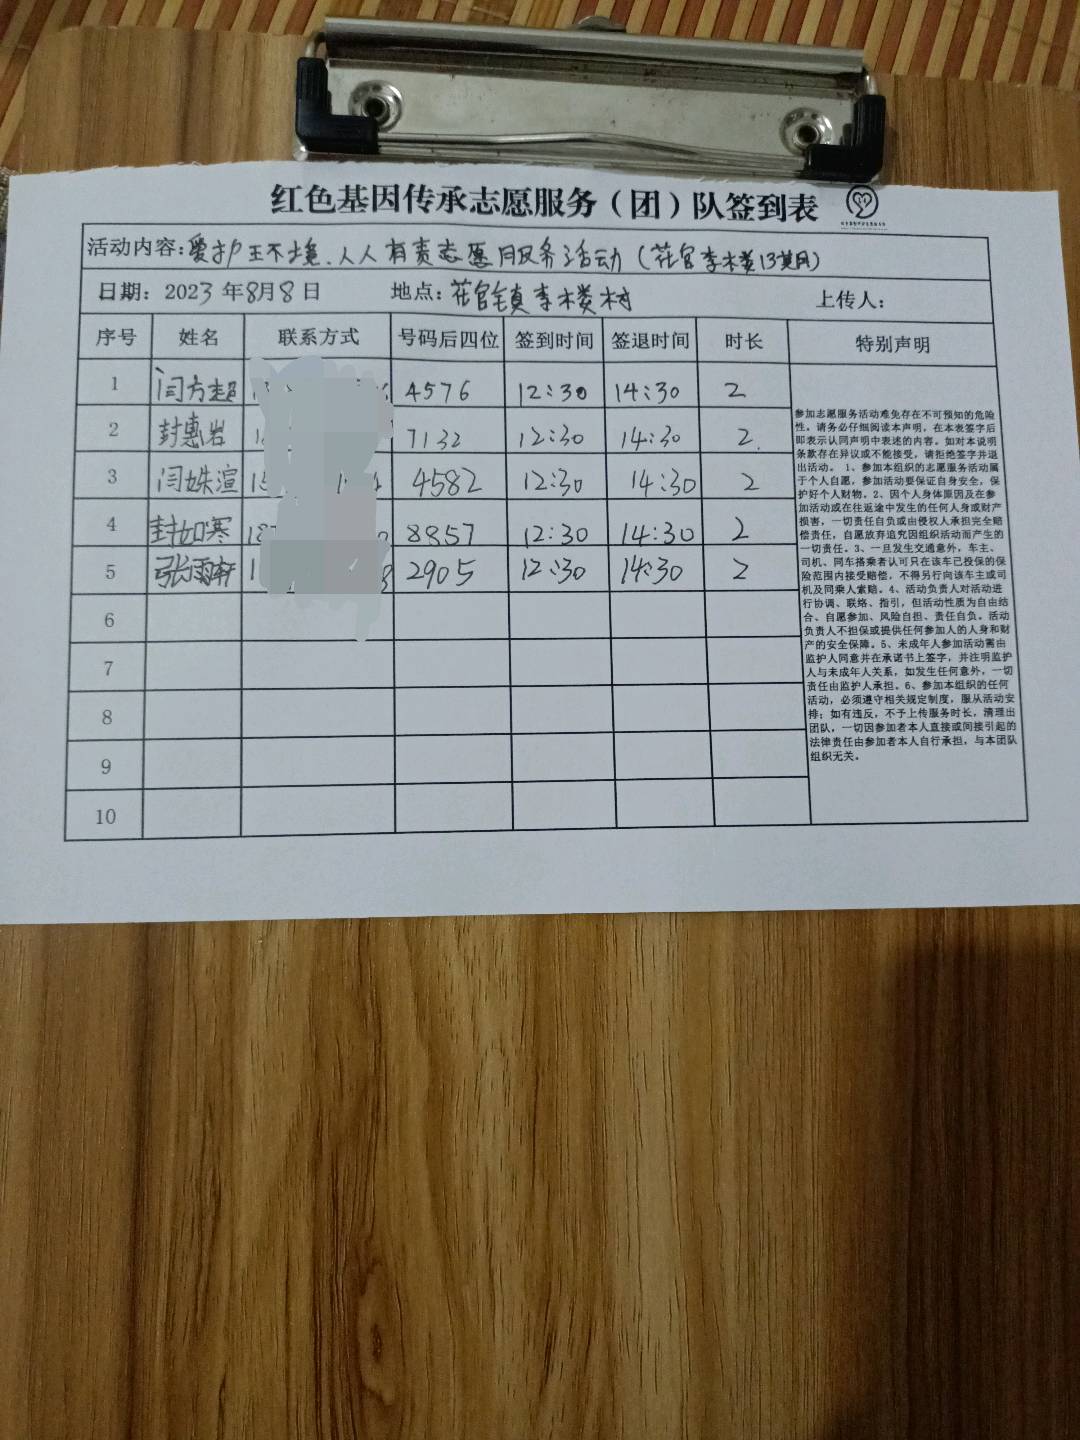 红色基因传承志愿服务（团）队签到表
活动内容：爱护环境、人人有责志愿服务活动（花官李楼13期）
日期：2023年8月8日 地点：花官镇李楼村 上传人：
序号 姓名 联系方式 号码后四位 签到时间 签退时间 时长 特别声明
1 闫方超 4576 12:30 14:30 2
2 封惠岩 7132 12:30 14:30 2.
3 闫姝渲 4582 12:30 14:30 2
4 封如寒 8857 12:30 14:30 2
5 张雨轩 2905 12:30 14:30 2
6
7
8
9
10
参加志愿服务活动难免存在不可预知的危险
性。请务必仔细阅读本声明，在本表签字后
即表示认同声明中表述的内容。如对本说明
条款存在异议或不能接受，请拒绝签字并退
出活动。 1、参加本组织的志愿服务活动属
于个人自愿，参加活动要保证自身安全，保
护好个人财物。2、因个人身体原因及在参
加活动或在往返途中发生的任何人身或财产
损害，一切责任自负或由侵权人承担完全赔
偿责任，自愿放弃追究因组织活动而产生的
一切责任。3、一旦发生交通意外，车主、
司机、同车搭乘者认可只在该车已投保的保
险范围内接受赔偿，不得另行向该车主或司
机及同乘人索赔。4、活动负责人对活动进
行协调、联络、指引，但活动性质为自由结
合、自愿参加、风险自担、责任自负。活动
负责人不担保或提供任何参加人的人身和财
产的安全保障。5、未成年人参加活动需由
监护人同意并在承诺书上签字，并注明监护
人与未成年人关系，如发生任何意外，一切
责任由监护人承担。6、参加本组织的任何
活动，必须遵守相关规定制度，服从活动安
排；如有违反，不予上传服务时长，清理出
团队，一切因参加者本人直接或间接引起的
法律责任由参加者本人自行承担，与本团队
组织无关。